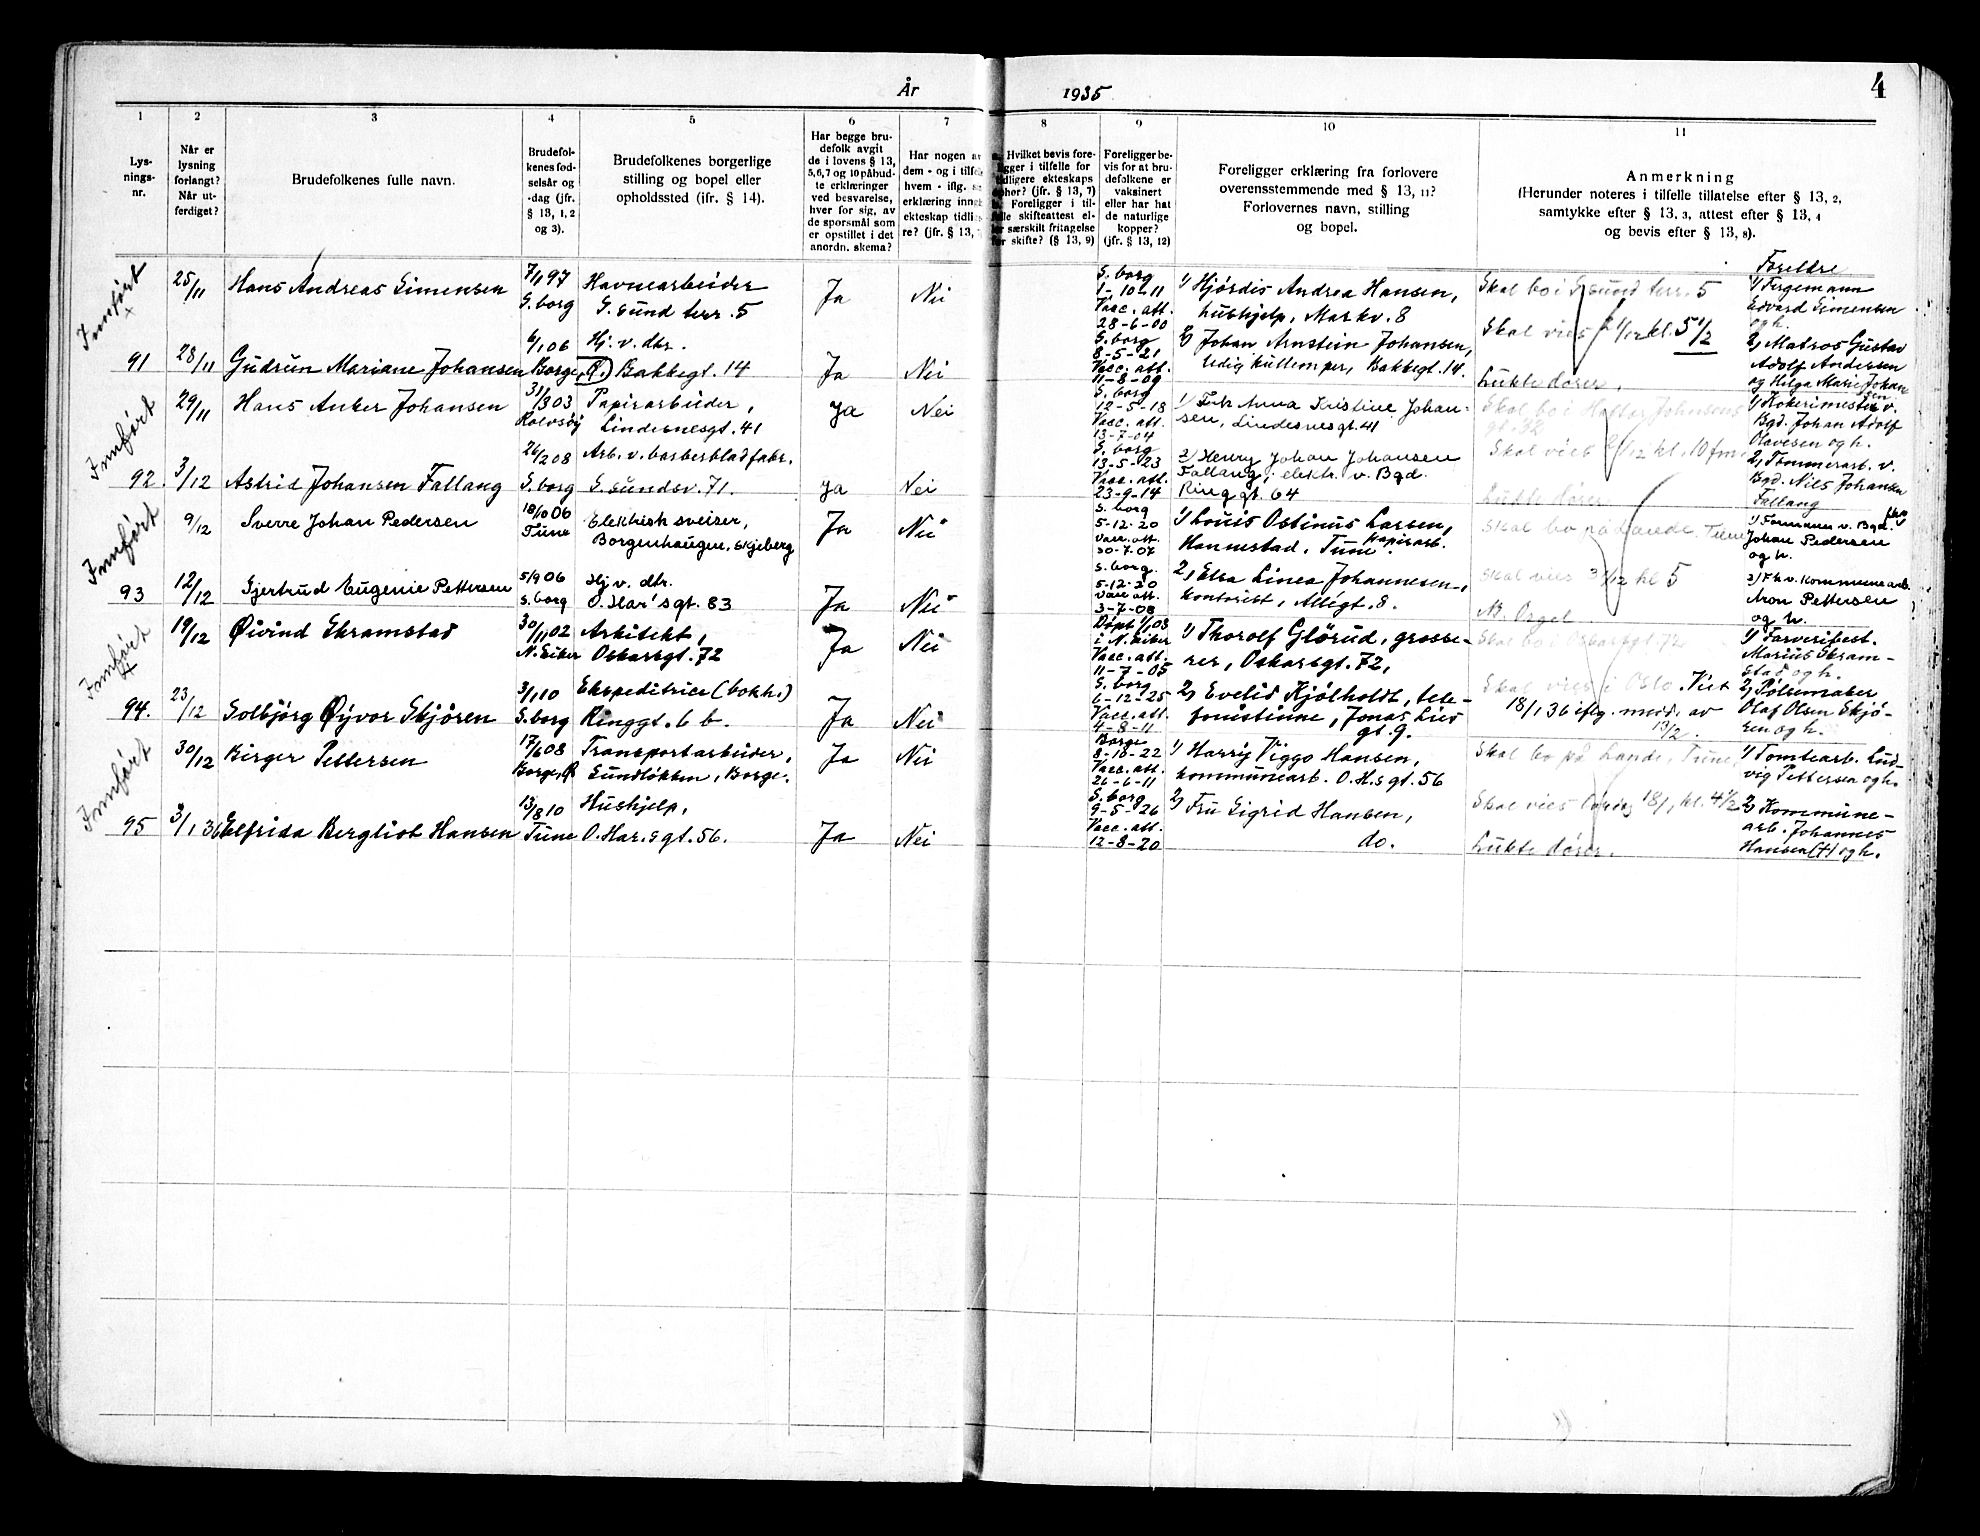 År 1935
4
1
2
3
4
5
6
7
8
9
10
11
Lys-
nings-
nr.
Når er
lysning
forlangt?
Når ut-
ferdiget?
Brudefolkenes fulle navn.
Brudefol-
kenes fød-
selsår og
-dag (jfr.
§ 13, 1, 2
og 3).
Brudefolkenes borgerlige
stilling og bopel eller
opholdssted (jfr. § 14).
Har begge bru-
defolk avgit
de i lovens § 13,
5,6,7 og 10 påbud-
te erklæringer
ved besvarelse,
hver for sig, av
de sporsmål som
er opstillet i det
anordn. skema?
Har nogen av
dem - og i tilf
hvem - iflg.
erklæring inng
ekteskap tidli
re? (jfr. § 13,
Hvilket bevis fore-
ligger i tilfelle for
tidligere ekteskaps
ophor? (jfr. § 13, 7)
Foreligger i til-
felle skifteattest el-
ler særskilt fritagelse
for skifte? (§ 13, 9)
Foreligger be-
vis for at bru-
defolkene er
vaksinert
eller har hat
de naturlige
kopper?
(jfr. § 13, 12)
Foreligger erklæring fra forlovere
overensstemmende med § 13, 11?
Forlovernes navn, stilling
og bopel.
Anmerkning
(Herunder noteres i tilfelle tillatelse efter § 13, 2,
samtykke efter § 13, 3, attest efter § 13, 4
og bevis efter § 13, 8).
Innført
25/11 Hans Andreas Simensen
7/1 97
S.borg
Havnearbeider
G. sund terr. 5
Ja Nei
S. borg
1-10-11
Vacc. att.
28-6-00
1) Hjørdis Andrea Hansen,
hushjelp, Markv. 8
Skal bo i G.sund terr. 5
Skal vies 21/12 kl. 5 1/2
Foreldre
1) Fergemann
Edvard Simensen
og h.
91 28/11 Gudrun Mariane Johansen
6/1 06
Borge, Ø.
Hj. v. dtr.
Bakkegt. 14
Ja Nei
S. borg
8-5-21
Vacc. att.
11-8-09
2) Johan Arnstein Johansen,
ledig kullemper, Bakkegt. 14.
Lukte dører.
2, Matros Gustav
Adolf Andersen
og Helga Marie Johan
sen
Innført
29/11 Hans Anker Johansen
31/3 03
Rolvsøy
Papirarbeider,
Lindesnesgt. 41
Ja Nei
S. borg
12-5-18
Vacc. att.
13-7-04
1) Frk Anna Kristine Johan-
sen, Lindesnesgt. 41
Skal bo i
Skal vies 21/12 kl. 10 fm.
1) Kokerimester v.
Bgd. Johan Adolf
Olavesen og h.
92. 3/12 Astrid Johansen Fallang
26/2 08
S.borg
Arb. v. barberbladfabr.
G. sundsv. 71.
Ja Nei
S. borg
13-5-23
Vacc. att.
23-9-14
2) Henry Johan Johansen
Fallang, elektr. v. Bgd.
Ringgt. 64
Lukte dører
2, Tømmerarb. v.
Bgd. Nils Johansen
Fallang
Innført
9/12 Sverre Johan Pedersen
18/10 06
Tune
Elektrisk sveiser,
Borgenhaugen, Skjeberg
Ja Nei
S. borg
5-12-20
Vacc. att.
30-7-07
1) Louis Ostinus Larsen,
Hannestad, Tune Papirarb.
Skal bo på Lande, Tune
1) Formann v. Bgd.
Johan Pedersen
og h.
93 12/12 Gjertrud Eugenie Pettersen
5/9 06
S. borg
Hj v. dtr.
O. Har's gt. 83
Ja Nei
S. borg.
5-12-20
Vacc att.
3-7-08
2, Elsa Linea Johannesen,
kontorist, Alligt. 8.
Skal vies 31/12 kl 5
N. Orgel
2) Fh v. kommunearb.
Aron Pettersen
og h.
Innført
19/12 Øivind Skramstad
30/11 02
N. Eiker
Arkitekt,
Oskarsgt. 72
Ja Nei
Døpt 1/1 03
i N. Eiker
Vacc. att.
11-7-05
1) Thorolf Glörud, grosse-
rer, Oskarsgt. 72,
Skal bo Oskarsgt. 72
1) Farveribest.
Marius Skram-
stad og h.
94. 23/12 Solbjörg Øyvor Skjören
3/1 10
S.borg
Ekspeditrice (bokh.)
Ringgt. 6 b.
Ja Nei
S. borg
6-12-25
Vacc. att.
4-8-11
2) Evelid Kjölholdt, tele-
fonistinne, Jonas Lies
gt. 9.
Skal vies i Oslo. Viet
18/1 36 iflg. medd. av
13/2.
2) Pølsemaker
Olaf Olsen Skjö-
ren og h.
Innført
30/12 Birger Pettersen
17/6 08
Borge, Ø
Transportarbeider,
Sundløkken, Borge.
Ja Nei
Borge
8-10-22
Vacc. att.
26-6-11
1) Harry Viggo Hansen,
kommunearb. O.H.s gt. 56
Skal bo på Lande, Tune
1) Tomtearb. Lud-
vig Pettersen og h.
95 3/1 36 Elfrida Bergliot Hansen
13/8 10
Tune
Hushjelp,
O. Har.s gt. 56.
Ja Nei
S. borg
9-5-26
Vacc. att.
12-8-20
2) Fru Sigrid Hansen,
do.
Skal vies lørdag 18/1 kl. 4 1/2
Lukte dører.
2) Kommune-
arb. Johannes
Hansen (†) og h.